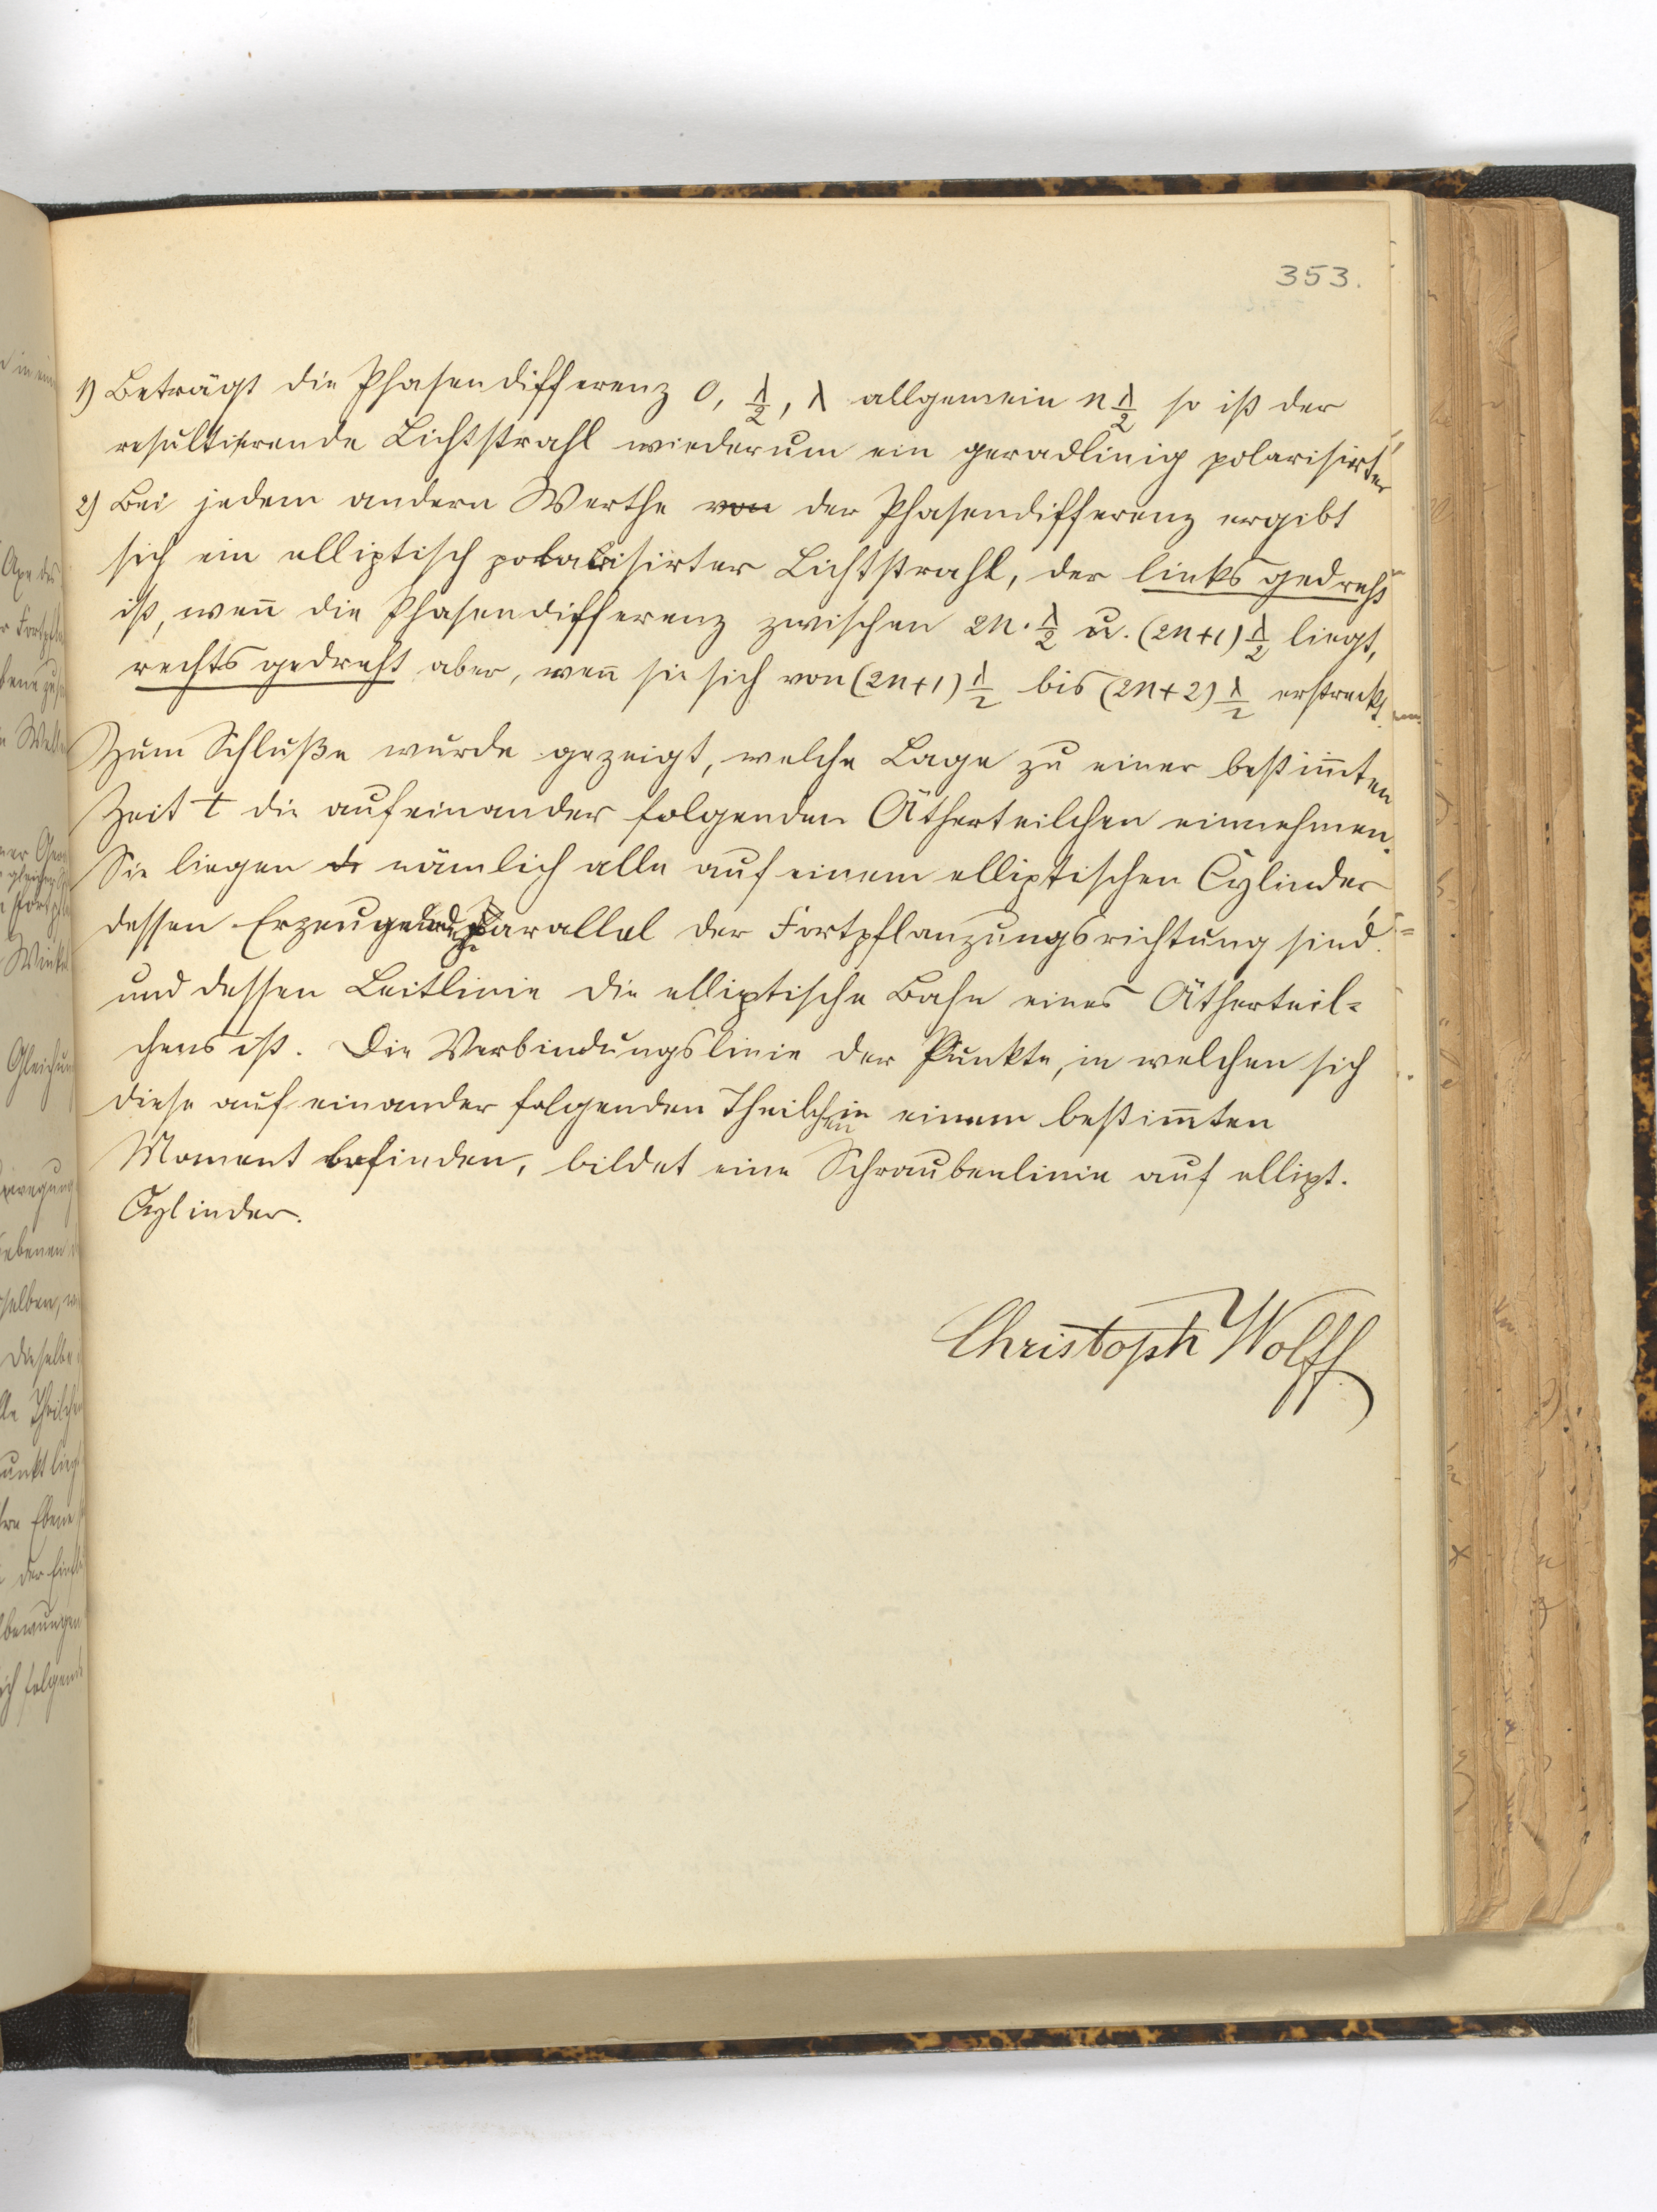 353.
1) Beträgt die Phasendifferenz 0, λ/2, λ allgemein n λ/2 so ist der
resultirende Lichtstrahl wiederum ein geradlinig polarisirter
2) Bei jedem andern Werthe von der Phasendifferenz ergibt
sich ein elliptisch polarisirter Lichtstrahl, der links gedreht
ist, wen̄ die Phasendifferenz zwischen 2n · λ/2 u. (2n+1) λ/2 liegt,
rechts gedreht aber, wen̄ sie sich von (2n+1) λ/2 bis (2n+2) λ/2 erstreckt.
Zum Schluße wurde gezeigt, welche Lage zu einer bestim̄ten
Zeit t die aufeinander folgenden Ätherteilchen einnehmen.
Sie liegen nämlich alle auf einem elliptischen Cylinder
dessen Erzeugende parallel der Fortpflanzungsrichtung sind.
und dessen Leitlinie die elliptische Bahn eines Ätherteil-
chens ist. Die Verbindungslinie der Punkte, in welchen sich
diese auf einander folgenden Theilchen in einem bestim̄ten
Moment befinden, bildet eine Schraubenlinie auf ellipt.
Cylinder.
Christoph Wolff